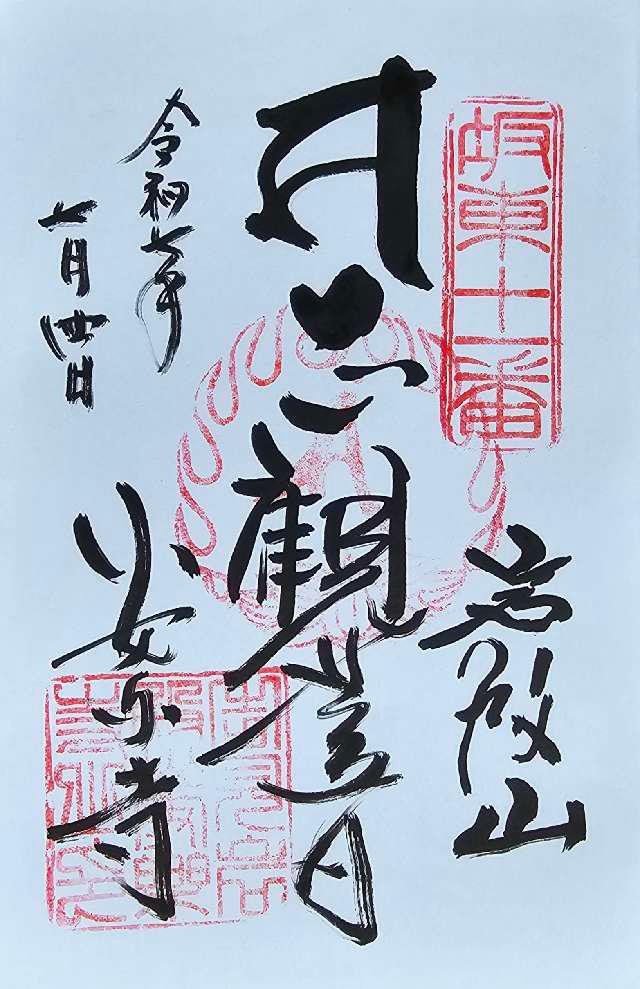 坂東十一番
岩殿山
観世音
安楽寺
令和七年
七月四日